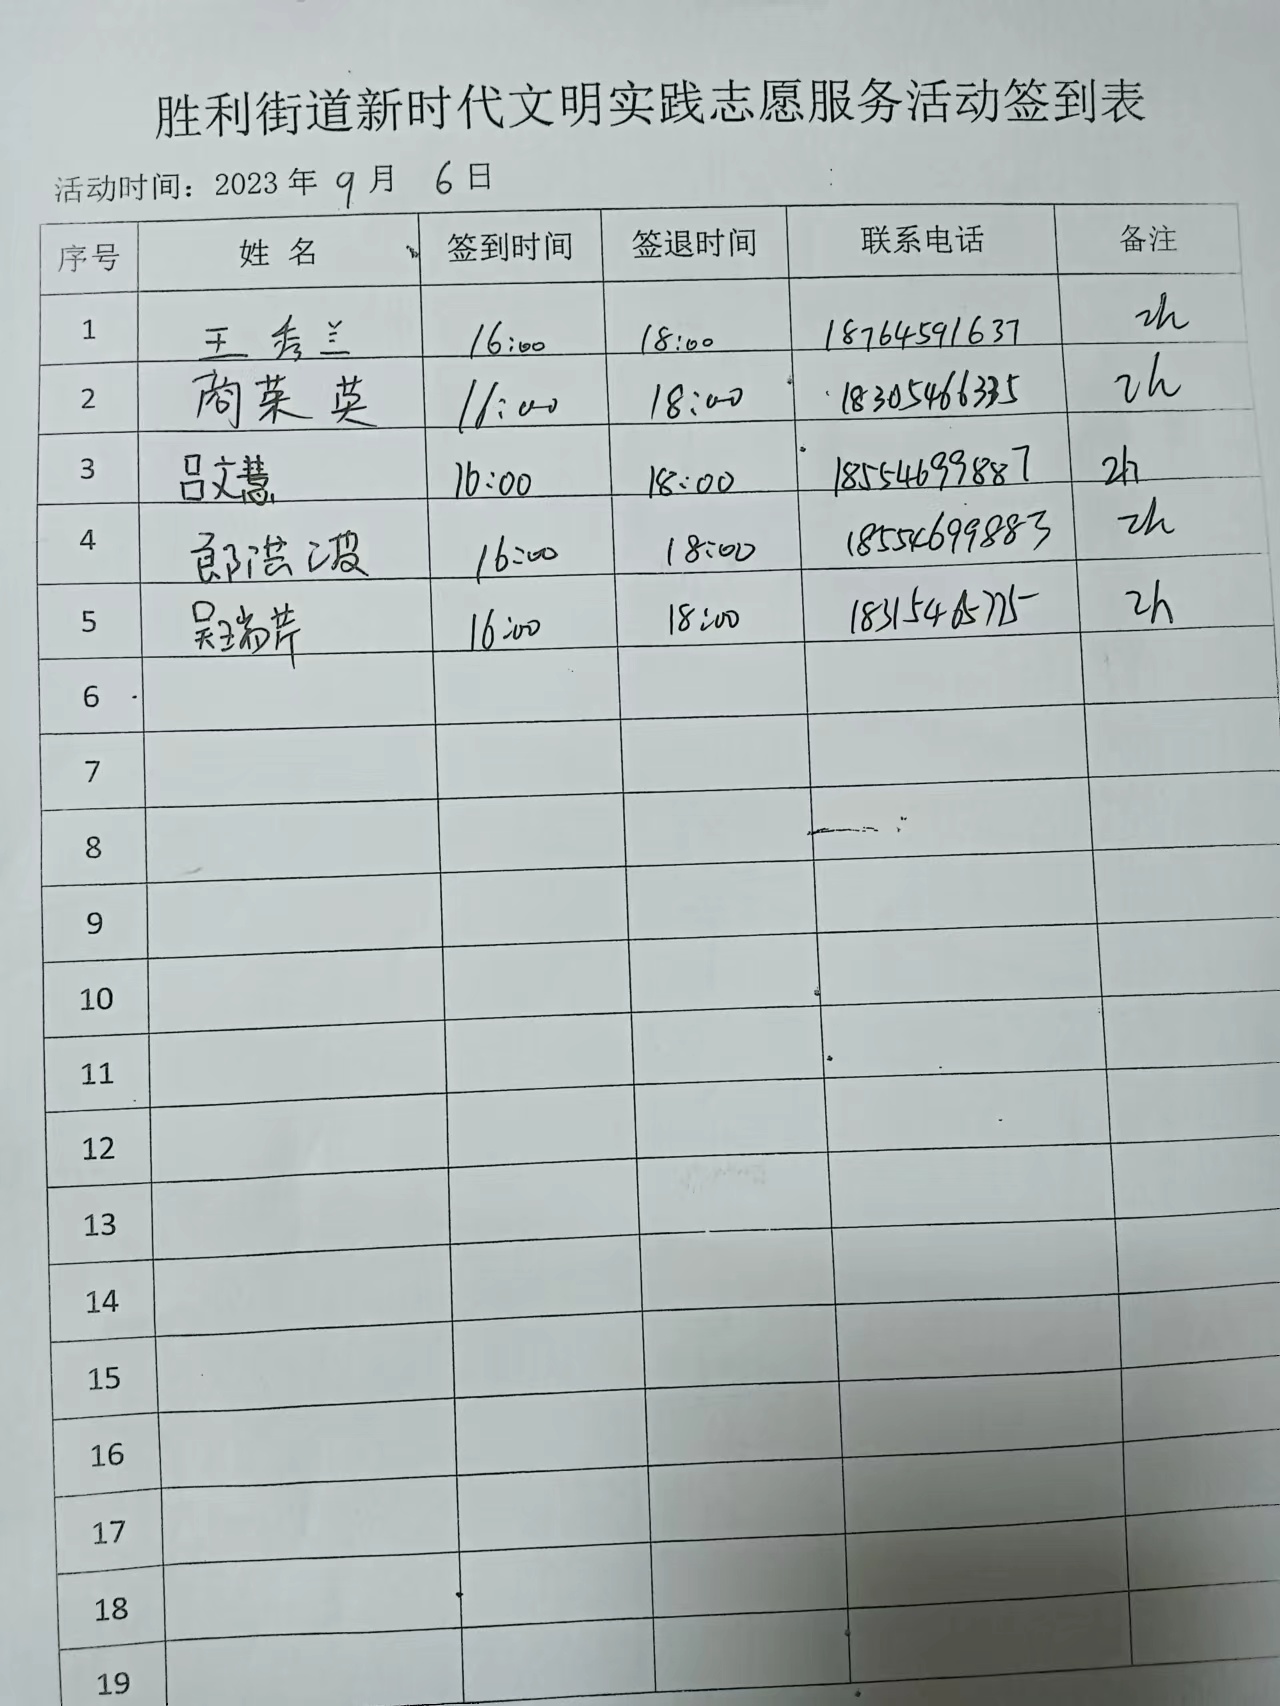 胜利街道新时代文明实践志愿服务活动签到表
活动时间：2023年 9月 6日
序号 姓名 签到时间 签退时间 联系电话 备注
1 王秀兰 16:00 18:00 18764591637 2h
2 商荣英 16:00 18:00 18305466335 2h
3 吕文慧 16:00 18:00 18554699887 2h
4 郎洪波 16:00 18:00 18554699883 2h
5 吴瑞芹 16:00 18:00 18315465775 2h
6
7
8
9
10
11
12
13
14
15
16
17
18
19